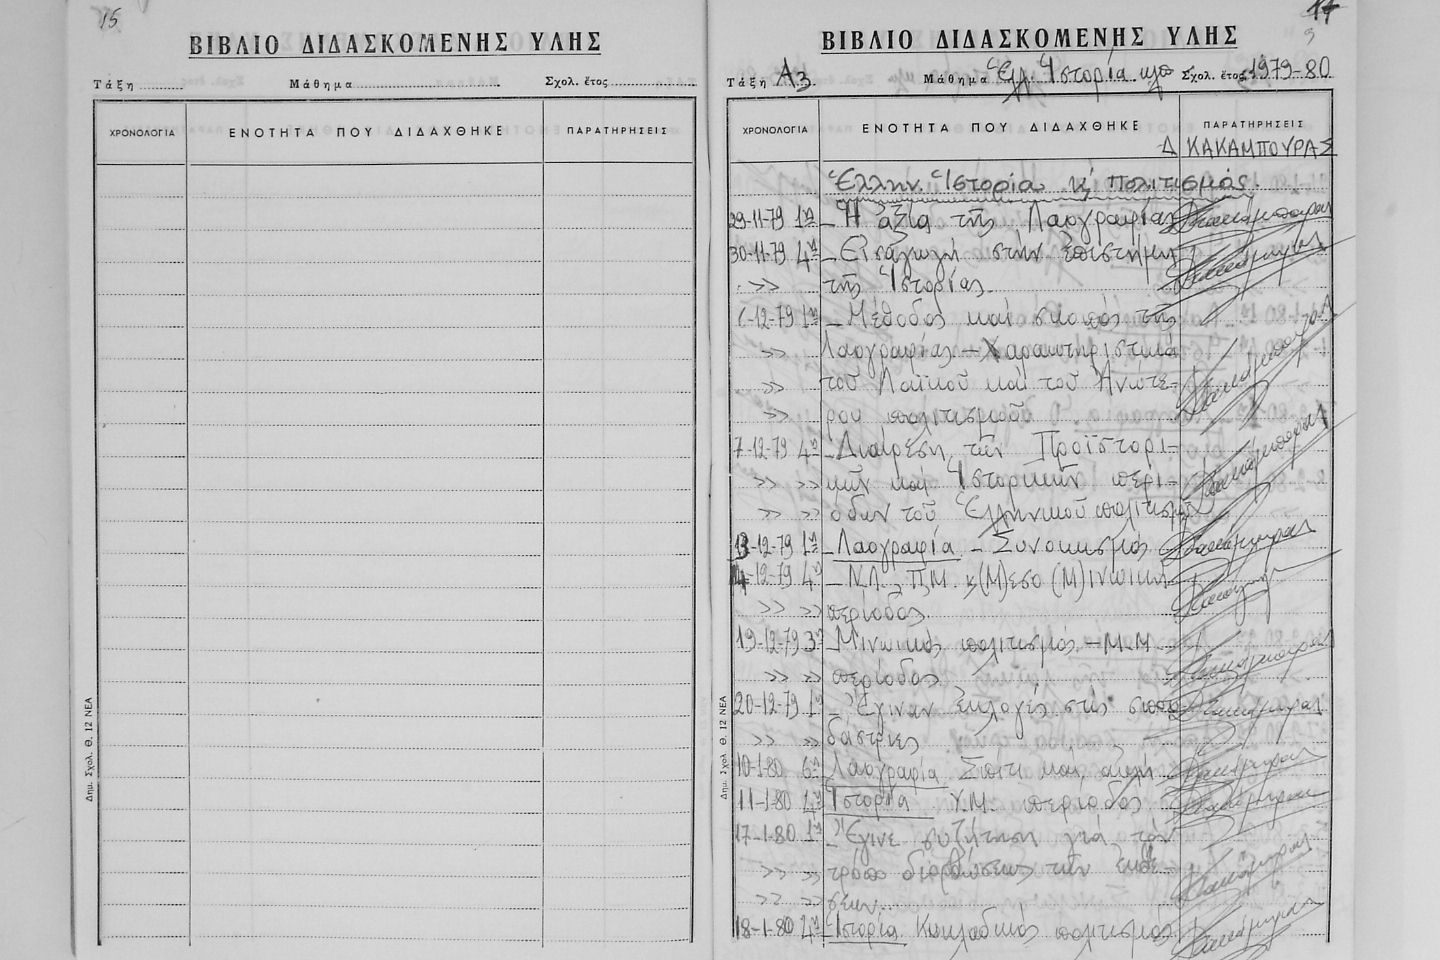 15
ΒΙΒΛΙΟ ΔΙΔΑΣΚΟΜΕΝΗΣ ΥΛΗΣ
Τάξη Μάθημα Σχολ. έτος
ΧΡΟΝΟΛΟΓΙΑ ΕΝΟΤΗΤΑ ΠΟΥ ΔΙΔΑΧΘΗΚΕ ΠΑΡΑΤΗΡΗΣΕΙΣ
Δημ. Σχολ. Θ. 12 ΝΕΑ
17
ΒΙΒΛΙΟ ΔΙΔΑΣΚΟΜΕΝΗΣ ΥΛΗΣ
Τάξη Α3 Μάθημα Ἑλ. Ἱστορία Σχολ. έτος 1979-80
ΧΡΟΝΟΛΟΓΙΑ ΕΝΟΤΗΤΑ ΠΟΥ ΔΙΔΑΧΘΗΚΕ ΠΑΡΑΤΗΡΗΣΕΙΣ
Δ ΚΑΚΑΜΠΟΥΡΑΣ
Ἑλλην. Ἱστορία κ' Πολιτισμός.
29-11-79 1η - Ἡ ἀξία τῆς Λαογραφίας
30-11-79 4η - Εἰσαγωγή στήν ἐπιστήμη
» τῆς Ἱστορίας.
-12-79 1η - Μέθοδος καί σκοπός της
» Λαογραφίας. - Χαρακτηριστικά
» τοῦ Λαϊκοῦ καί τοῦ Ἀνωτέ-
» ρου πολιτισμοῦ
7-12-79 4η - Διαίρεση τῶν Προϊστορι-
» » κῶν καί Ἱστορικῶν περι-
» » όδων τοῦ Ἑλληνικοῦ πολιτισμοῦ
13-12-79 1η - Λαογραφία - Συνοικισμός
14-12-79 4η - Ν.Λ., Π.Μ. κ (Μ)εσο (Μ)ινωική
» » περίοδος.
19-12-79 3η - Μινωικός πολιτισμός - Μ.Μ
» » περίοδος
20-12-79 1η - Ἔγιναν ἐκλογές στίς σπου
» » δάστριες
10-1-80 6η Λαογραφία Σπίτι καί αὐλή
11-1-80 4η Ἱστορία Υ.Μ. περίοδος
17-1-80 1η - Ἔγινε συζήτηση γιά τόν
» » τρόπο διορθώσεως τῶν ἐκθέ-
» » σεων
18-1-80 4η - Ἱστορία Κυκλαδικός πολιτισμός
Δημ. Σχολ. Θ. 12 ΝΕΑ